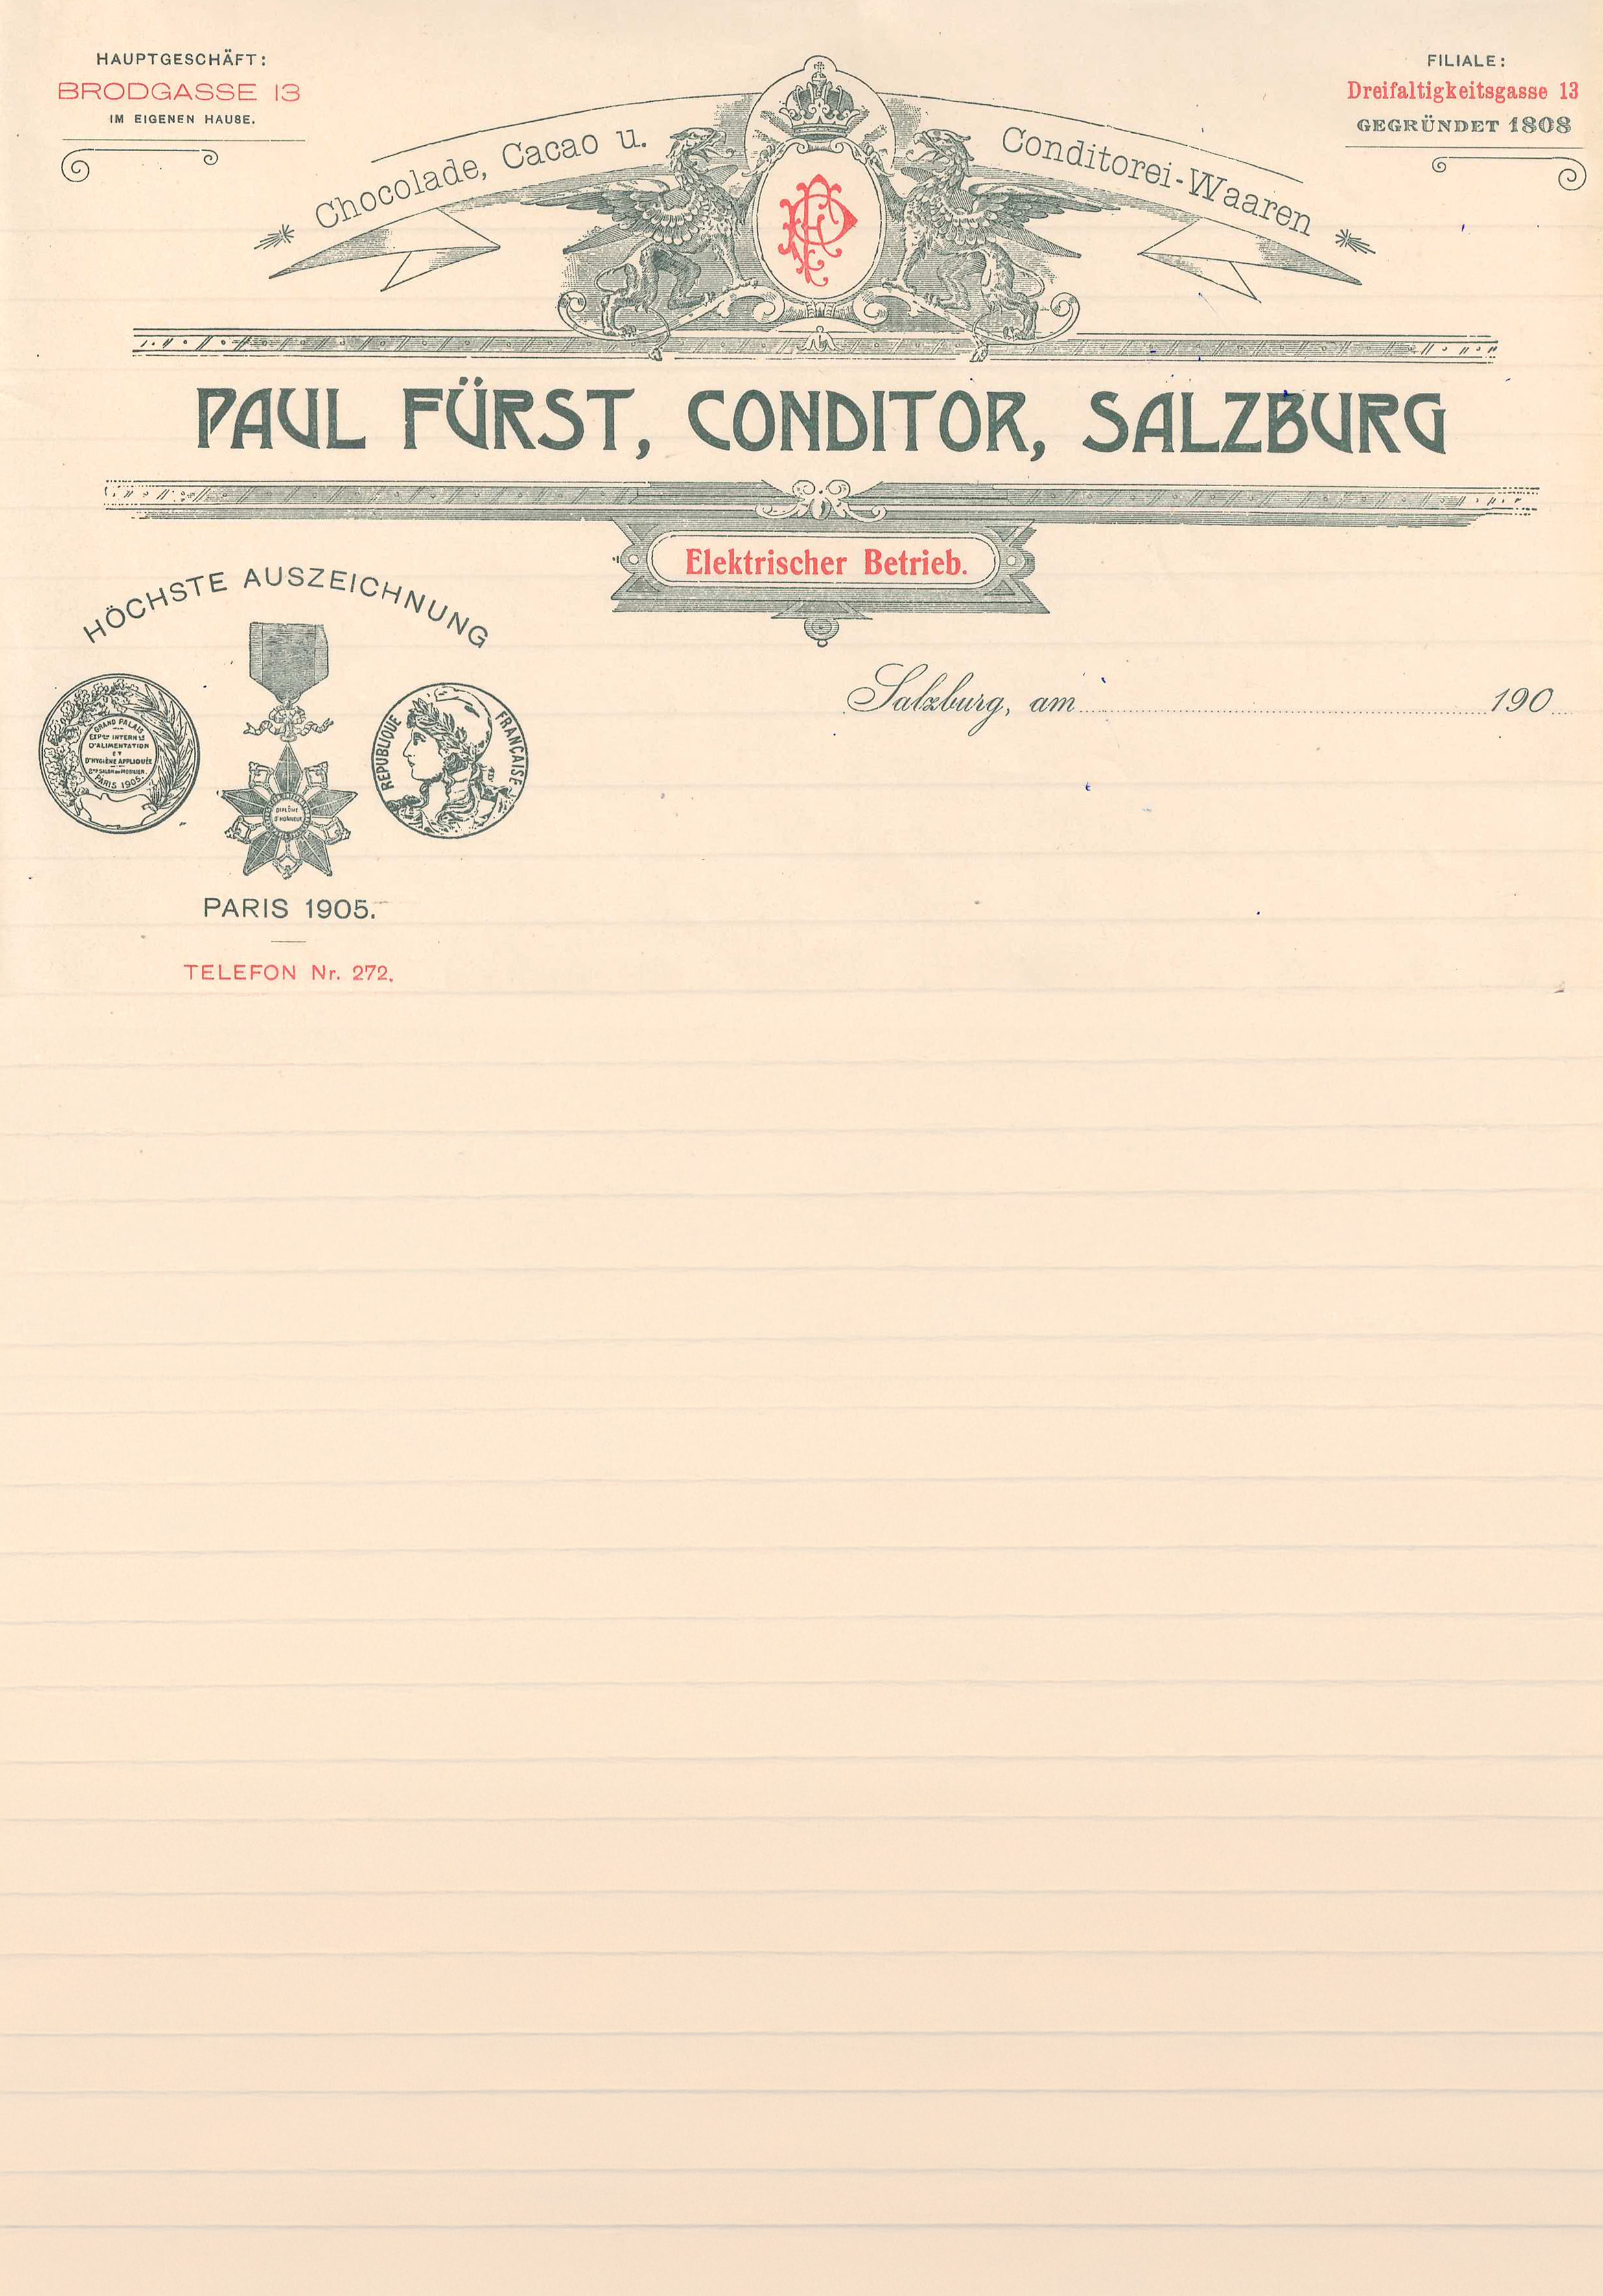 HAUPTGESCHÄFT:
BRODGASSE 13
IM EIGENEN HAUSE.
FILIALE:
Dreifaltigkeitsgasse 13
GEGRÜNDET 1808
Chocolade, Cacao u. Conditorei-Waaren
PAUL FÜRST, CONDITOR, SALZBURG
Elektrischer Betrieb.
HÖCHSTE AUSZEICHNUNG
GRAND PALAIS
INTERNLE
D'ALIMENTATION
ET
D'HYGIÈNE APPLIQUÉE
SALON DU MOBILIER.
PARIS 1905.
DIPLÔME
D'HONNEUR
REPUBLIQUE FRANÇAISE
PARIS 1905.
TELEFON Nr. 272.
Salzburg, am 190